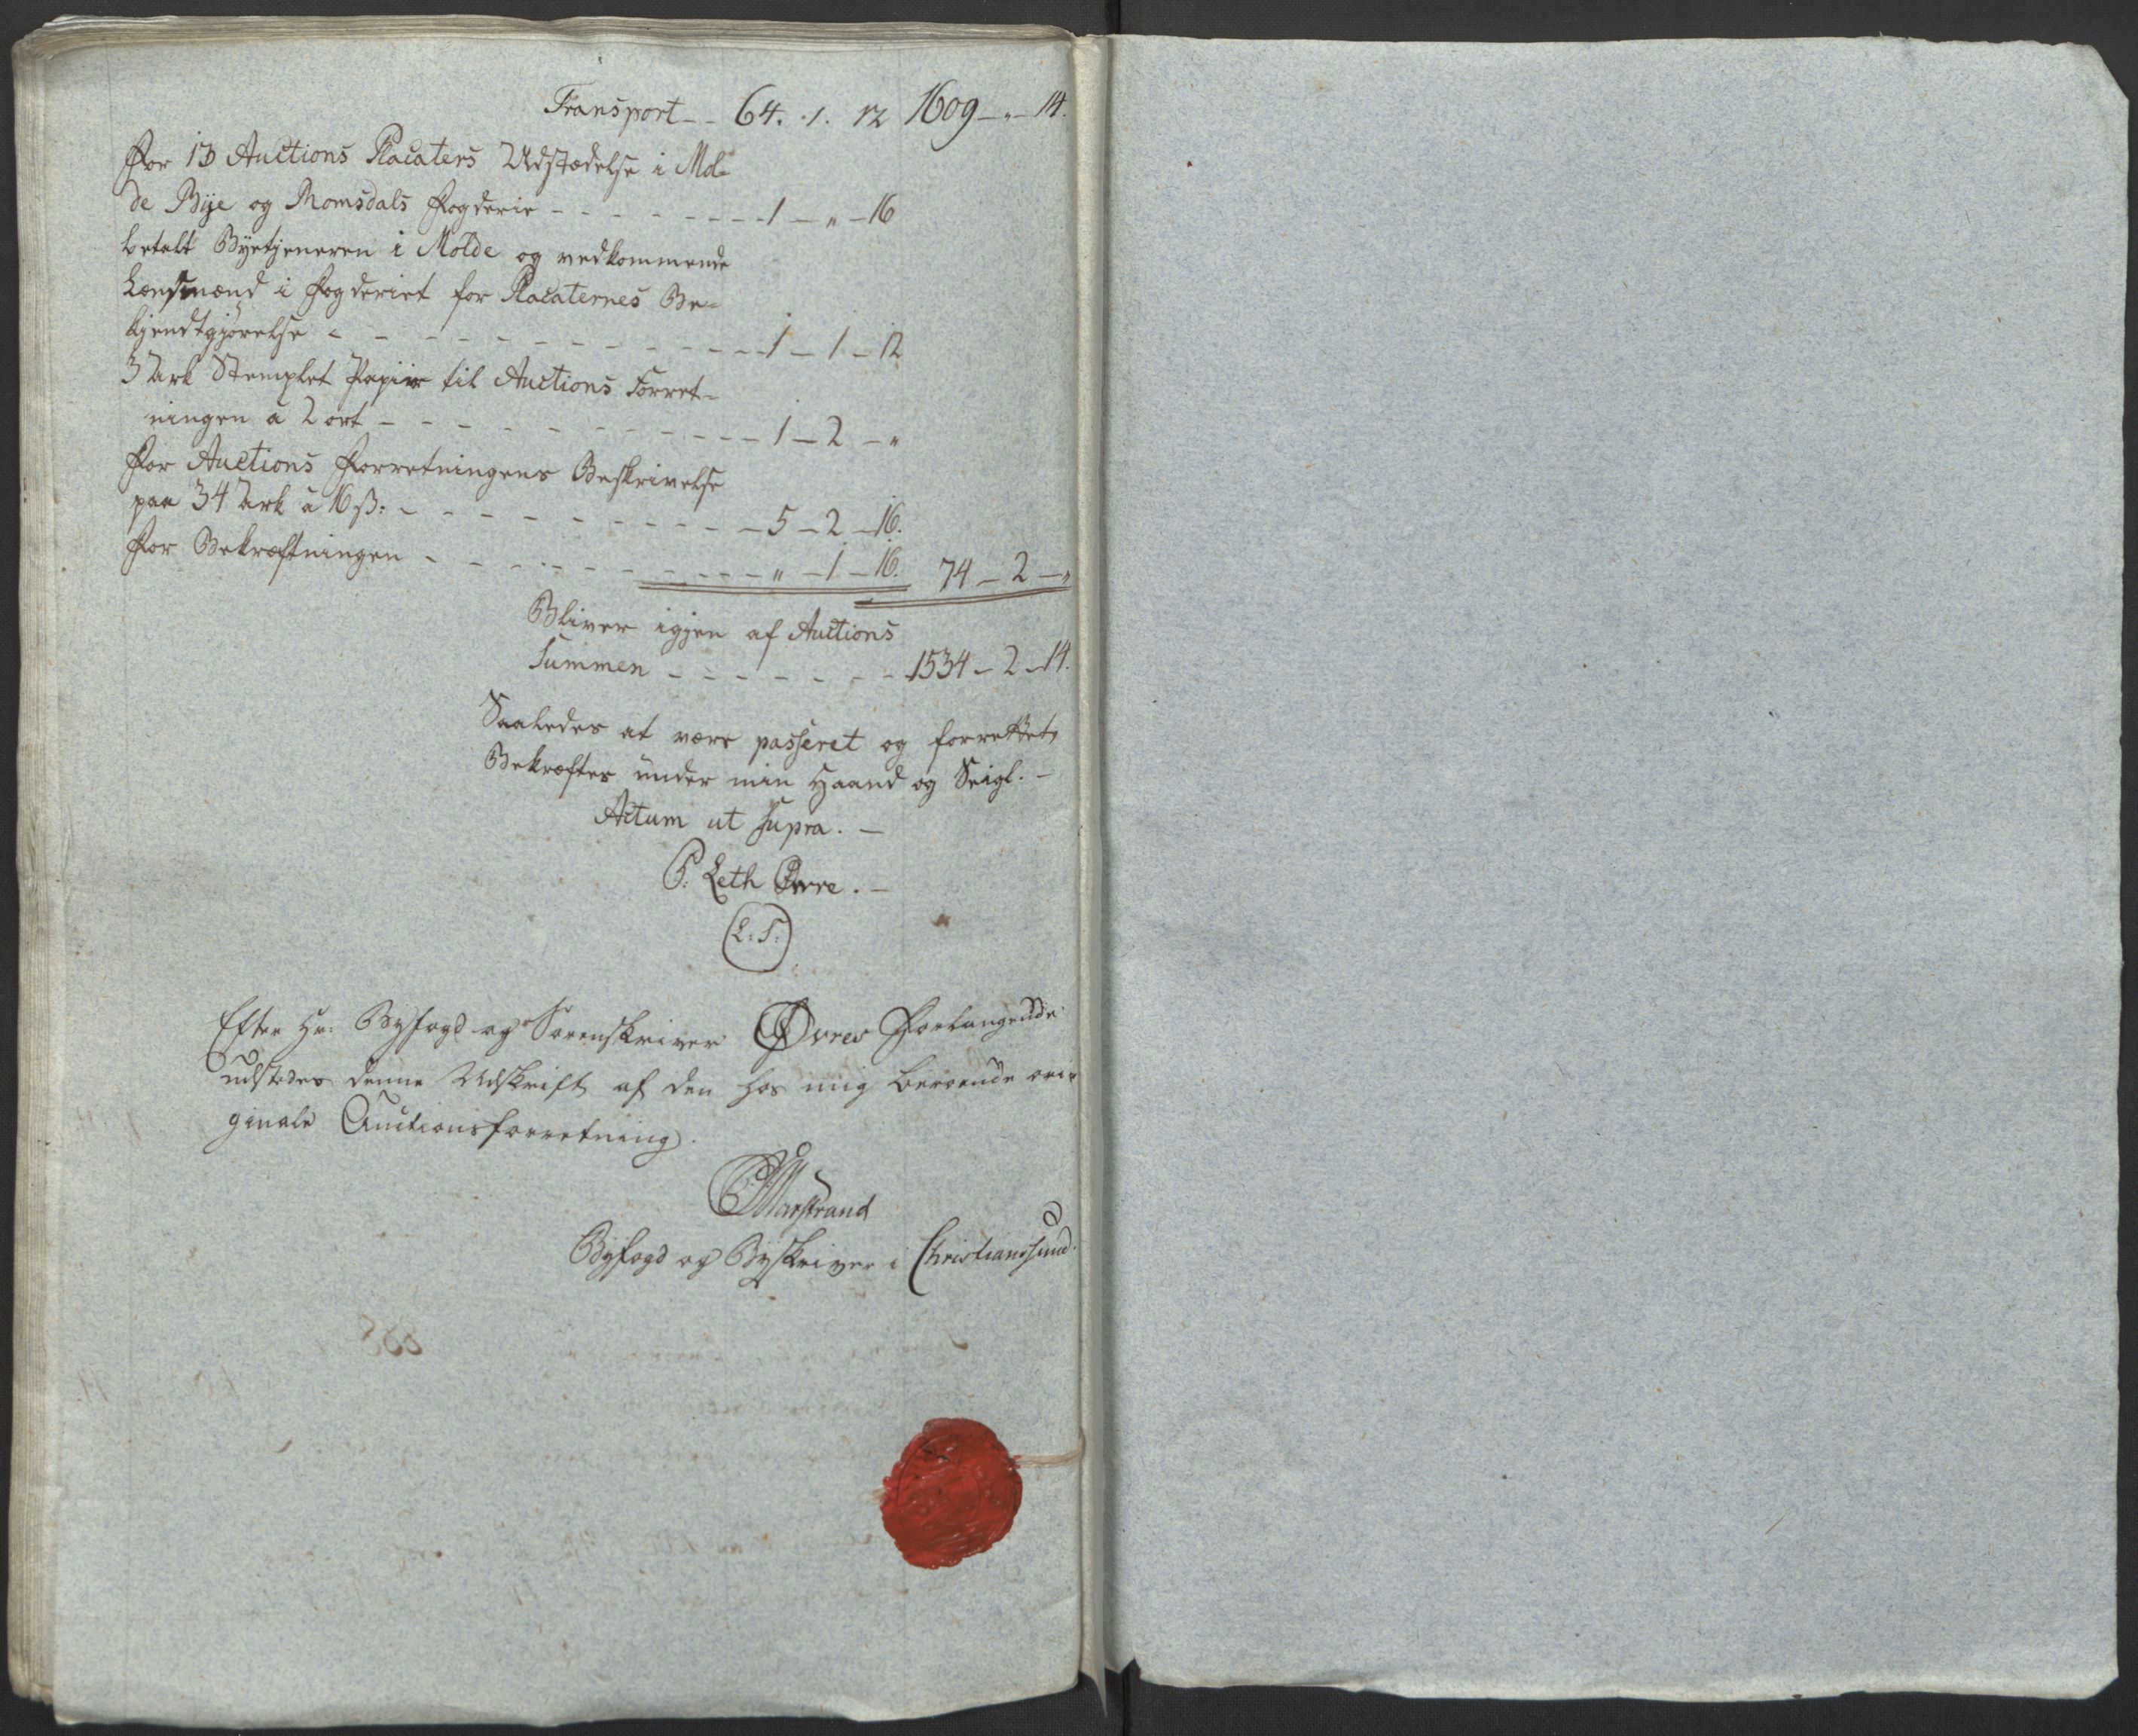 Transport -- 64. 1. 12 1609 - " - 14.
For 13 Auctions Placaters Udstædelse i Mol-
de Bye og Romsdals Fogderie - - - - - - - - 1 - " - 16
betalt Byetjeneren i Molde og vedkommende
Lensmænd i Fogderiet for Placaternes Be-
kjendtgjørelse - - - - - - - - - - - - 1 - 1 - 12
3 Ark Stemplet Papiir til Auctions Forret-
ningen a 2 ort - - - - - - - - - - - 1 - 2 - "
For Auctions Forretningens Beskrivelse
paa 34 Ark a 16 ß: - - - - - - - - - - 5 - 2 - 16.
For Bekræftningen - - - - - - - - - - " - 1 - 16. 74 - 2 - "
Bliver igjen af Auctions
Summen - - - - - - - 1534 - 2 - 14.
Saaledes at være passeret og forrettet,
Bekræftes under min Haand og Seigl. -
Actum ut supra. -
P: Leth Øvre. -
(L: S:)
Efter Hr: Byfogd og Sorenskriver Øvres Forlangende
udstedes denne Udskrift af den hos mig beroende ori-
ginale Auctionsforretning.
Marstrand
Byfogd og Byskriver i Christianssund.